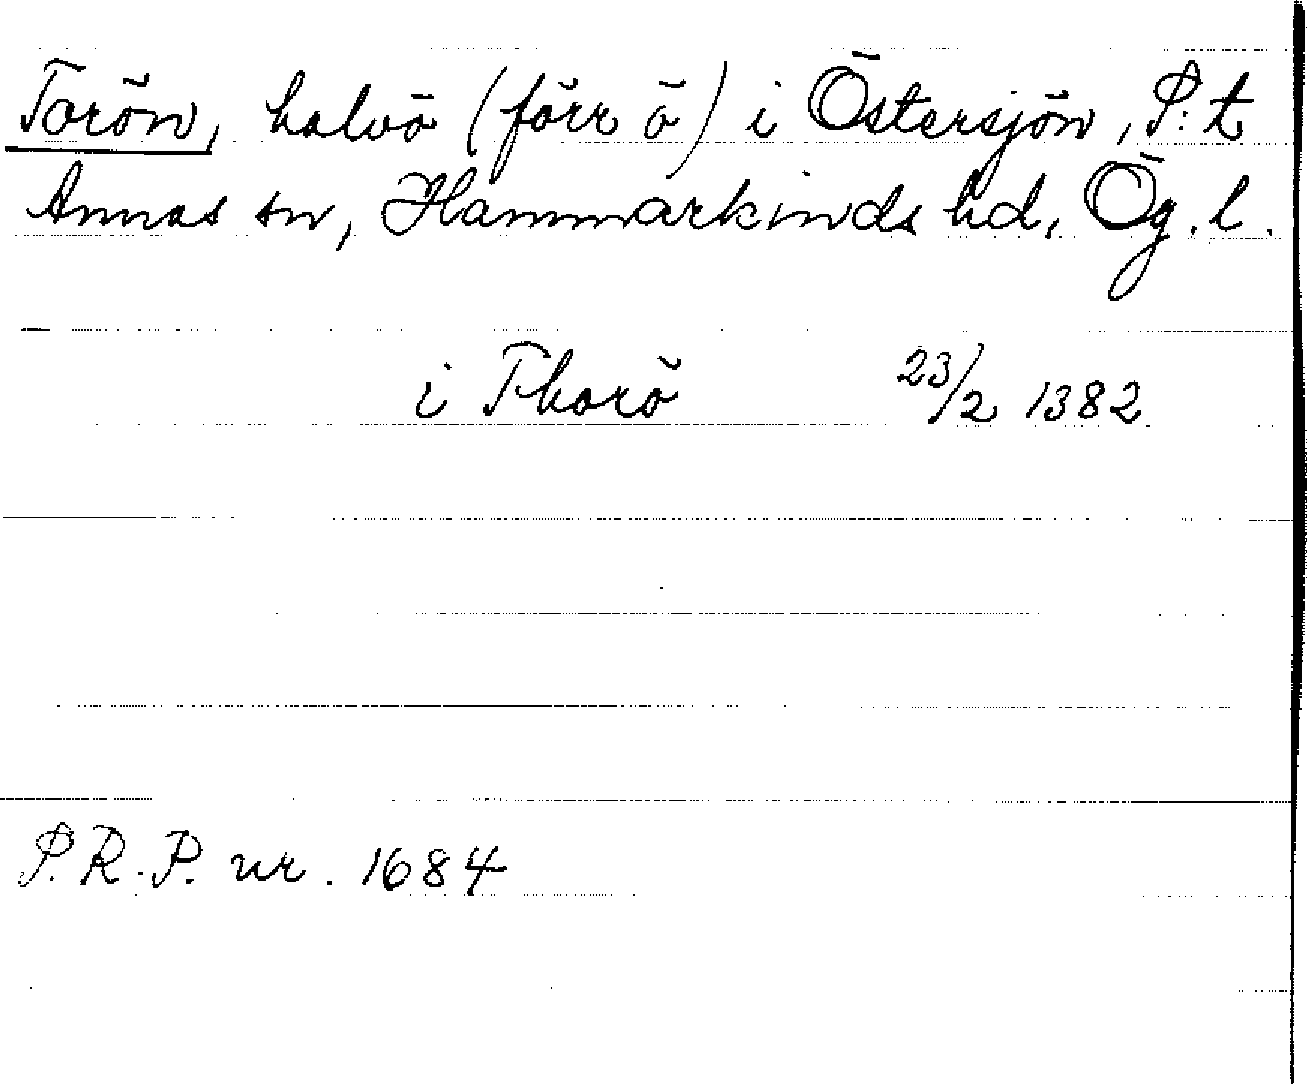 Torön, halvö (förr ö) i Östersjön, S:t
Annas sn, Hammarkinds hd, Ög. l.
i Thorö 23/2 1382
S.R.P. nr. 1684